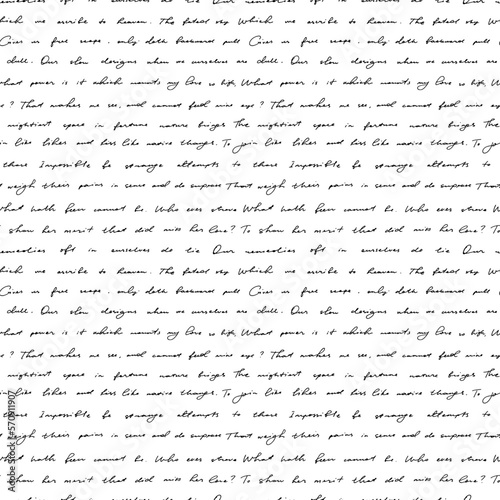 we ascribe to heaven. The fated sky Which we ascribe to heaven. The fated sky Which
Gives us free scope. only doth backward pull Gives us free scope. only doth backward pull
dull. Our slow designs when we ourselves are dull. Our slow designs when we ourselves are
what power is it which mounts my love so high What power is it which mounts my love so high What
? That makes me see, and cannot feed mine eye? That makes me see, and cannot feed mine eye?
mightiest space in fortune nature brings The mightiest space in fortune nature brings The
join like likes and kiss like native things. To join like likes and kiss like native things. To
those Impossible be strange attempts to those Impossible be strange attempts to
weigh their pains in sense and do suppose That weigh their pains in sense and do suppose That
what hath been cannot be. Who ever strove What hath been cannot be. Who ever strove What
show her merit that did miss her love? To show her merit that did miss her love? To
remedies oft in ourselves do lie Our remedies oft in ourselves do lie Our
which we ascribe to heaven. The fated sky Which we ascribe to heaven. The fated sky Which
Gives us free scope. only doth backward pull Gives us free scope. only doth backward pull
dull. Our slow designs when we ourselves are dull. Our slow designs when we ourselves are
what power is it which mounts my love so high What power is it which mounts my love so high What
? That makes me see, and cannot feed mine eye? That makes me see, and cannot feed mine eye?
mightiest space in fortune nature brings The mightiest space in fortune nature brings The
join like likes and kiss like native things. To join like likes and kiss like native things. To
those Impossible be strange attempts to those Impossible be strange attempts to
weigh their pains in sense and do suppose That weigh their pains in sense and do suppose That
what hath been cannot be. Who ever strove What hath been cannot be. Who ever strove What
show her merit that did miss her love? To show her merit that did miss her love? To
Adobe Stock | #570911907